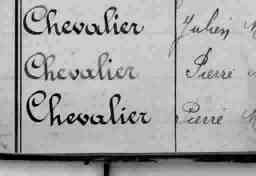 Chevalier Julien
Chevalier Pierré
Chevalier Pierré